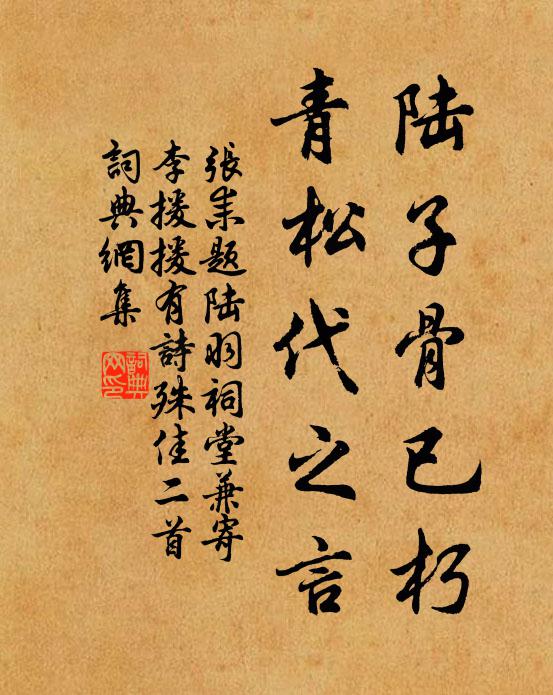 陆子骨已朽
青松代之言
張耒题陆羽祠堂兼寄
李援援有詩殊佳二首
詞典網集
詞典
网印